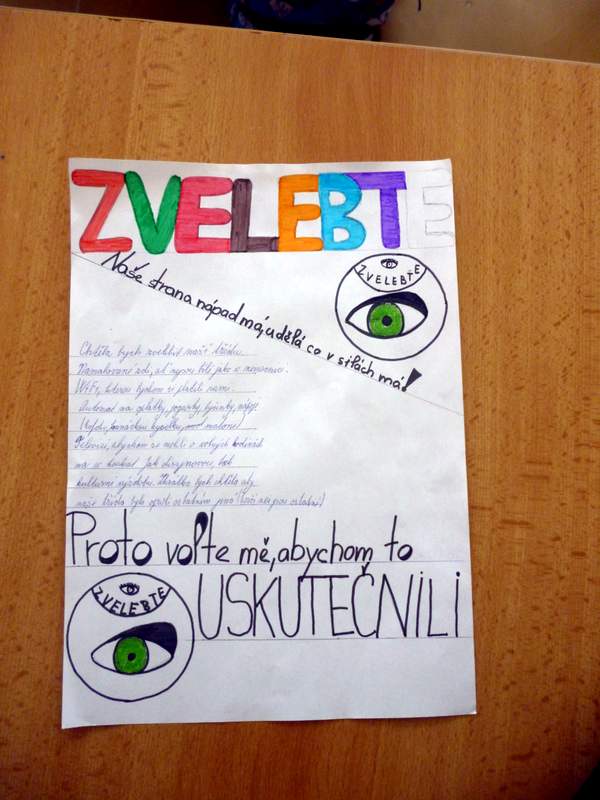 ZVELEBTE
Naše strana nápad má, udělá co v silách má!
ZVELEBTE
Chtěla bych zvelebit naší třídu.
Namalované zdi, ať nejsou bílé jako v nemocnici.
WiFi, kterou bychom si platili sami.
Automat na oplatky, jogurty, tyčinky, nápoje
Televizi, abychom se mohli o volných hodinách
na co koukat. Jak
kulturní výzdobu. Zkrátka bych chtěla aby
naše třída byla oproti ostatním jiná
Proto volte mě, abychom to
USKUTEČNILI
ZVELEBTE